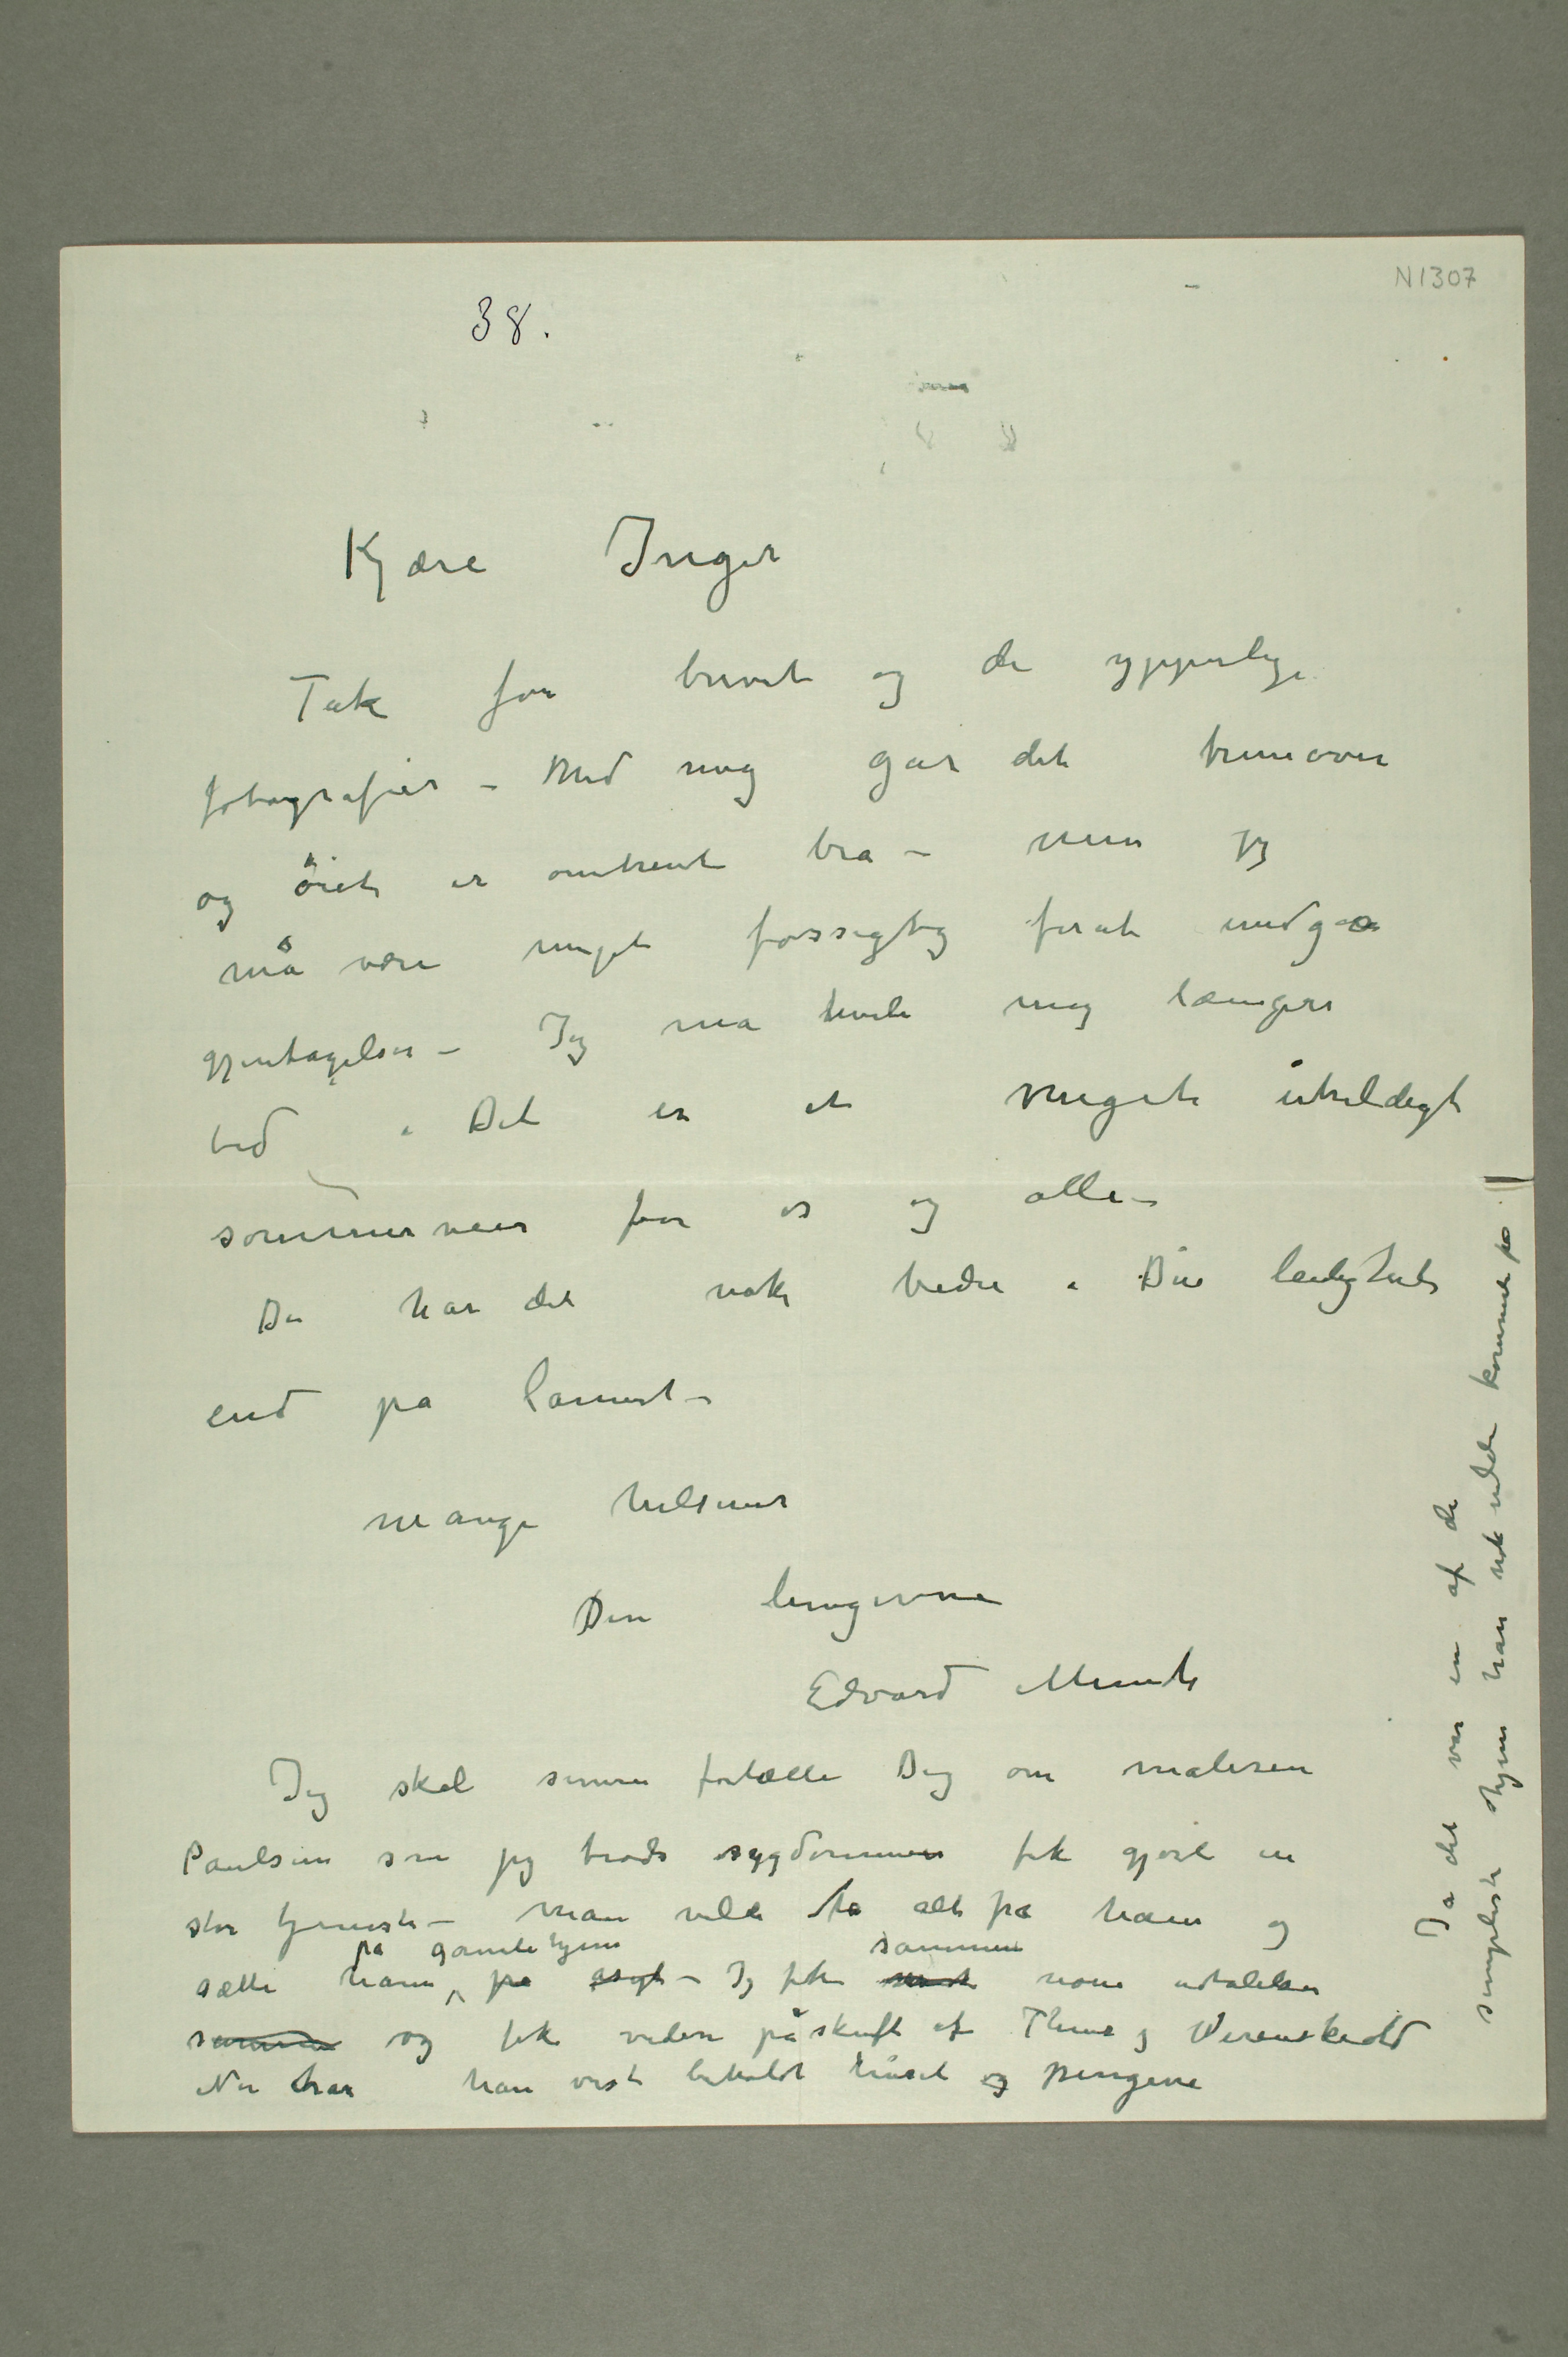 N1307
38.
Kjære Inger
Tak for brevet og de ypperlige
fotografier – Med mig går det fremover
og öiet er omtrent bra – men jeg
må være meget forsigtig forat undgaa
gjentagelser – Jeg må hvile mig længere
tid . Det er et meget uheldigt
sommerveir for os og alle –
Du har det nok bedre i Din leilighed
end på landet –
mange hilsener
Din hengivne
Edvard Munch
Jeg skal senere fortælle Dig om maleren
Paulsen som jeg trods sygdommen fik gjort en
stor tjeneste – man vilde ta alt fra ham og
på gamlehjem sammen
sætte ham på asyl – Jeg fik nogen udtalelser
sammen og fik videre påskrift af Thiis og Werenskiold
Nu har han vist beholdt huset og pengene
Ja det var en af de
simpleste hjem han nok vilde kommet på